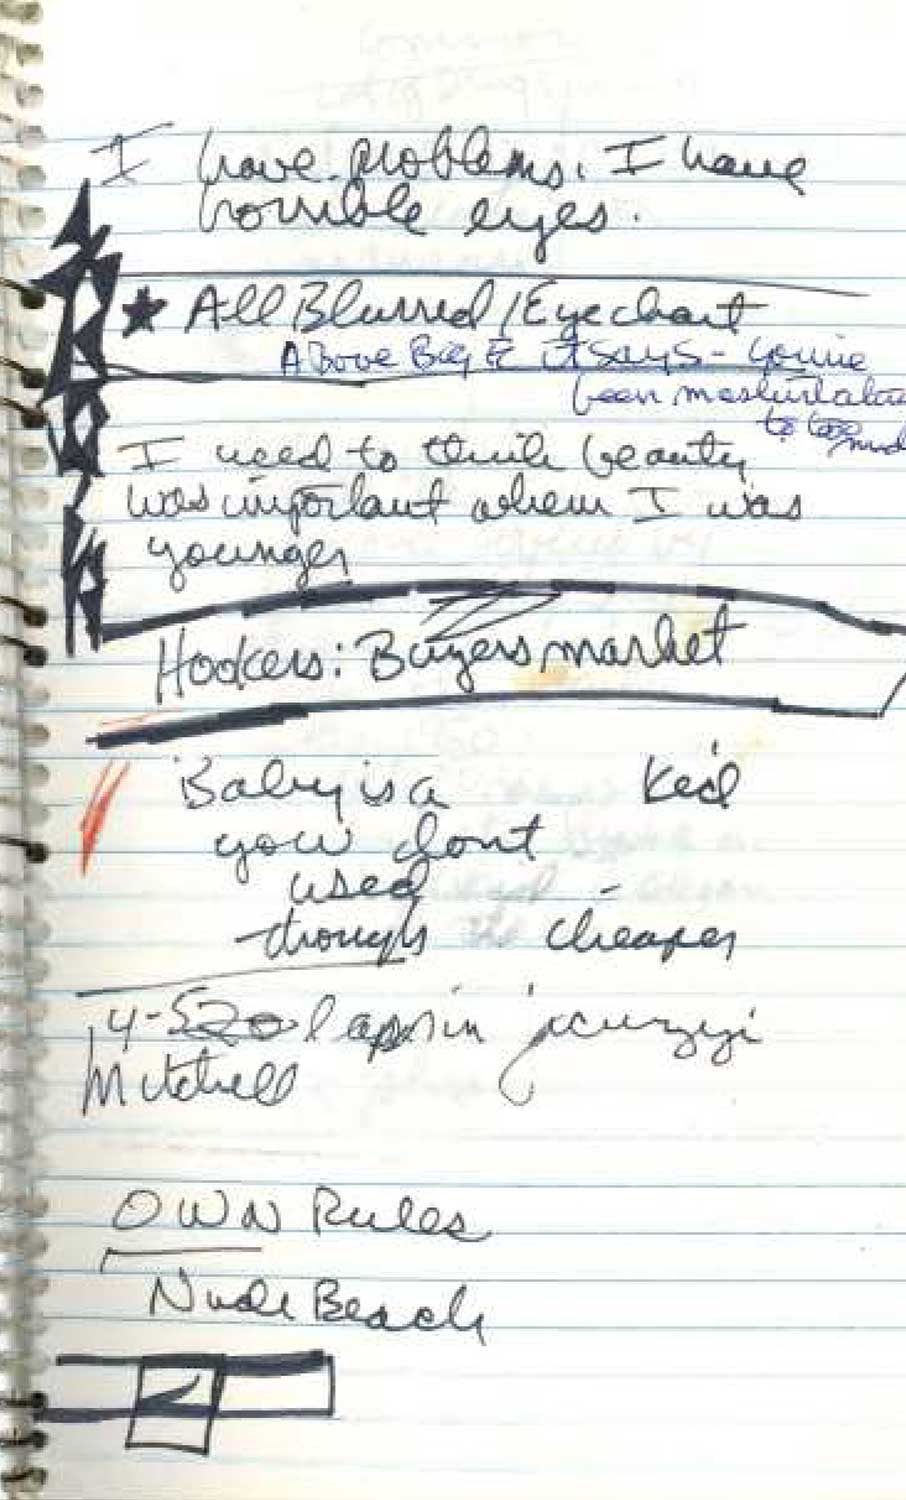 I have problems. I have
horrible eyes.
★ All Blurred / Eyechart
Above Big E it says - you've
been masturbating
to too much
I need to think beauty
was important when I was
younger
Hookers: Buyers market
Baby is a Ked
you dont
used -
though cheaper
4-520 laps in jacuzyi
Mitchell
OWN Rules
Nude Beach